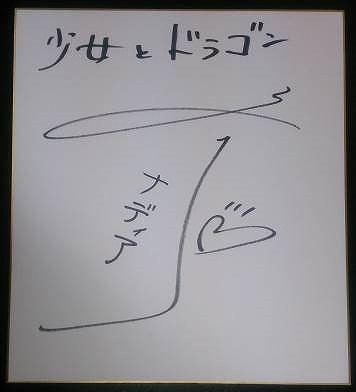 少女とドラゴン
ナデア